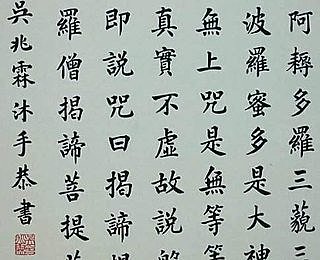 阿耨多羅三藐三
波羅蜜多是大神
無上咒是無等等
真實不虛故說般
即說咒曰揭諦揭
羅僧揭諦菩提
吳兆霖沐手恭書